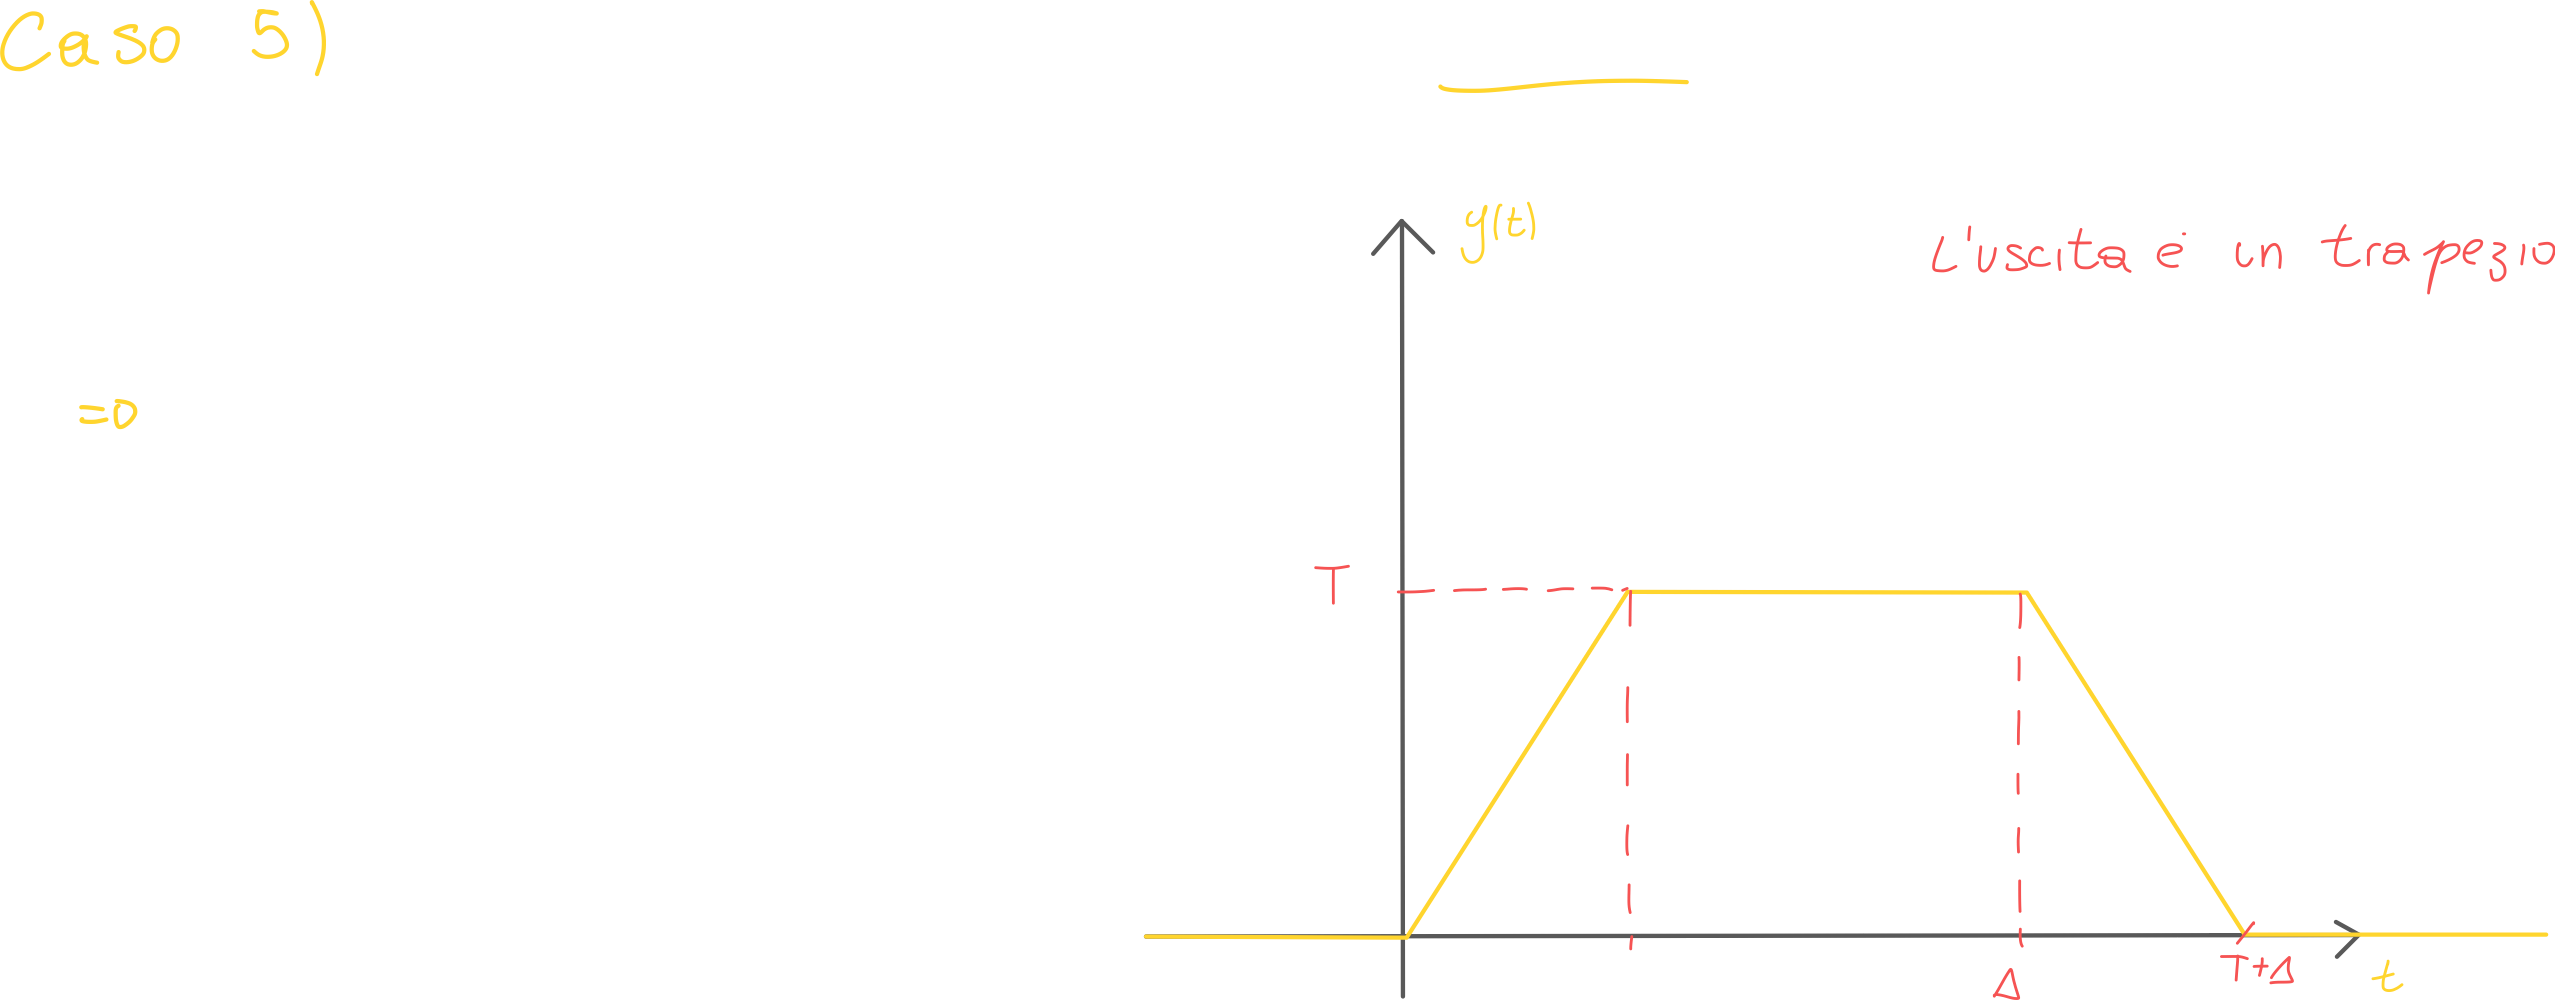 Caso 5)
y(t)
L'uscita è un trapezio
=0
T
Δ
T+Δ
t